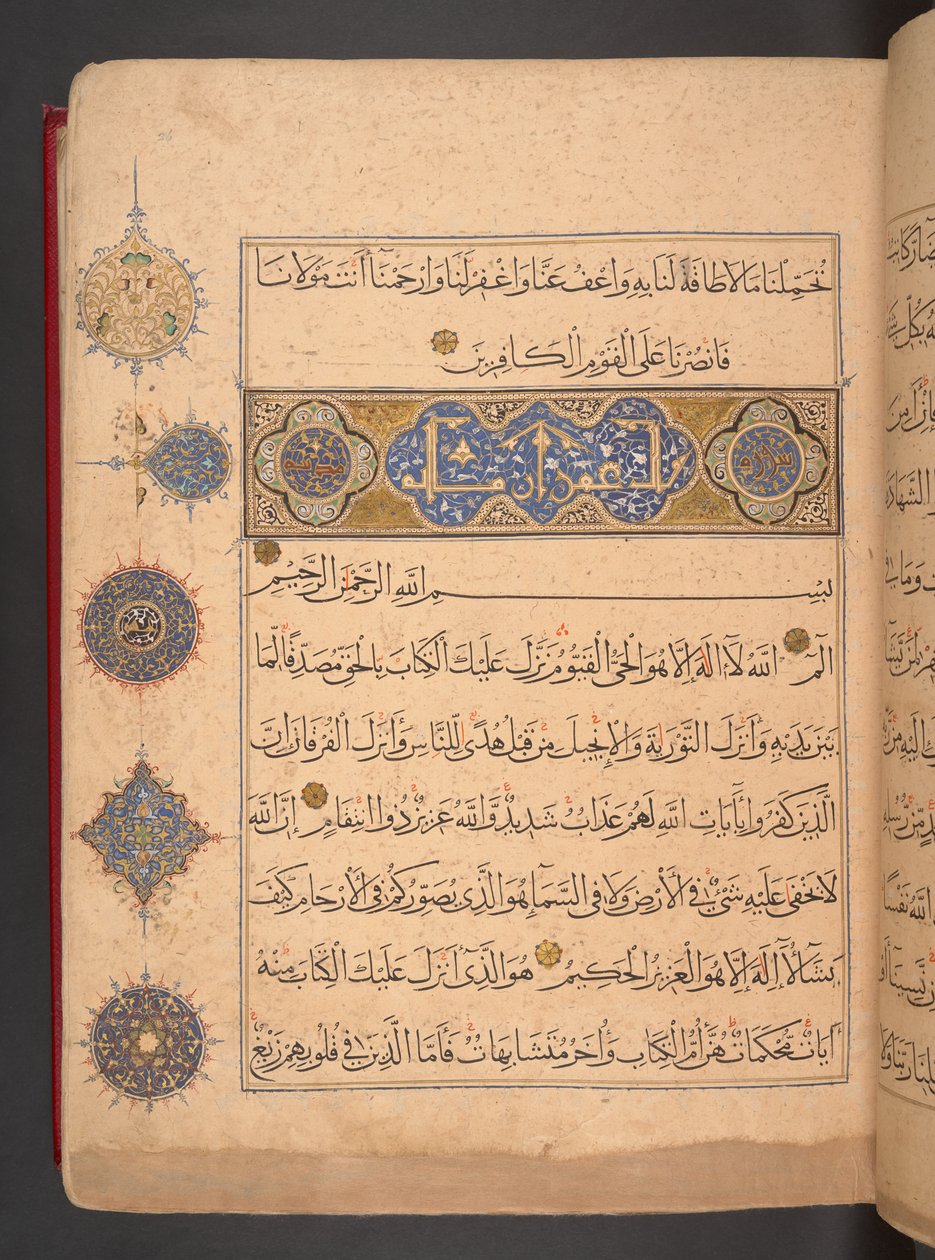 26
تُحَمِّلْنَا مَا لَا طَاقَةَ لَنَا بِهِ وَاعْفُ عَنَّا وَاغْفِرْ لَنَا وَارْحَمْنَا أَنْتَ مَوْلَانَا
فَانْصُرْنَا عَلَى الْقَوْمِ الْكَافِرِينَ
سورة ال عمرن مدنية
بِسْمِ اللَّهِ الرَّحْمَنِ الرَّحِيمِ
الٓمٓ اللَّهُ لَآ إِلَهَ إِلَّا هُوَ الْحَيُّ الْقَيُّومُ نَزَّلَ عَلَيْكَ الْكِتَابَ بِالْحَقِّ مُصَدِّقًا لِّمَا
بَيْنَ يَدَيْهِ وَأَنْزَلَ التَّوْرَيةَ وَالْإِنْجِيلَ مِنْ قَبْلُ هُدًى لِّلنَّاسِ وَأَنْزَلَ الْفُرْقَانَ إِنَّ
الَّذِينَ كَفَرُوا بِأَيَاتِ اللَّهِ لَهُمْ عَذَابٌ شَدِيدٌ وَّاللَّهُ عَزِيزٌ ذُو انْتِقَامٍ إِنَّ اللَّهَ
لَا يَخْفَى عَلَيْهِ شَيْءٌ فِي الْأَرْضِ وَلَا فِي السَّمَآءِ هُوَ الَّذِي يُصَوِّرُكُمْ فِي الْأَرْحَامِ كَيْفَ
يَشَآءُ لَآ إِلَهَ إِلَّا هُوَ الْعَزِيزُ الْحَكِيمُ هُوَ الَّذِيٓ أَنْزَلَ عَلَيْكَ الْكِتَابَ مِنْهُ
أَيَاتٌ مُّحْكَمَاتٌ هُنَّ أُمُّ الْكِتَابِ وَأُخَرُ مُتَشَابِهَاتٌ فَأَمَّا الَّذِينَ فِي قُلُوبِهِمْ زَيْغٌ